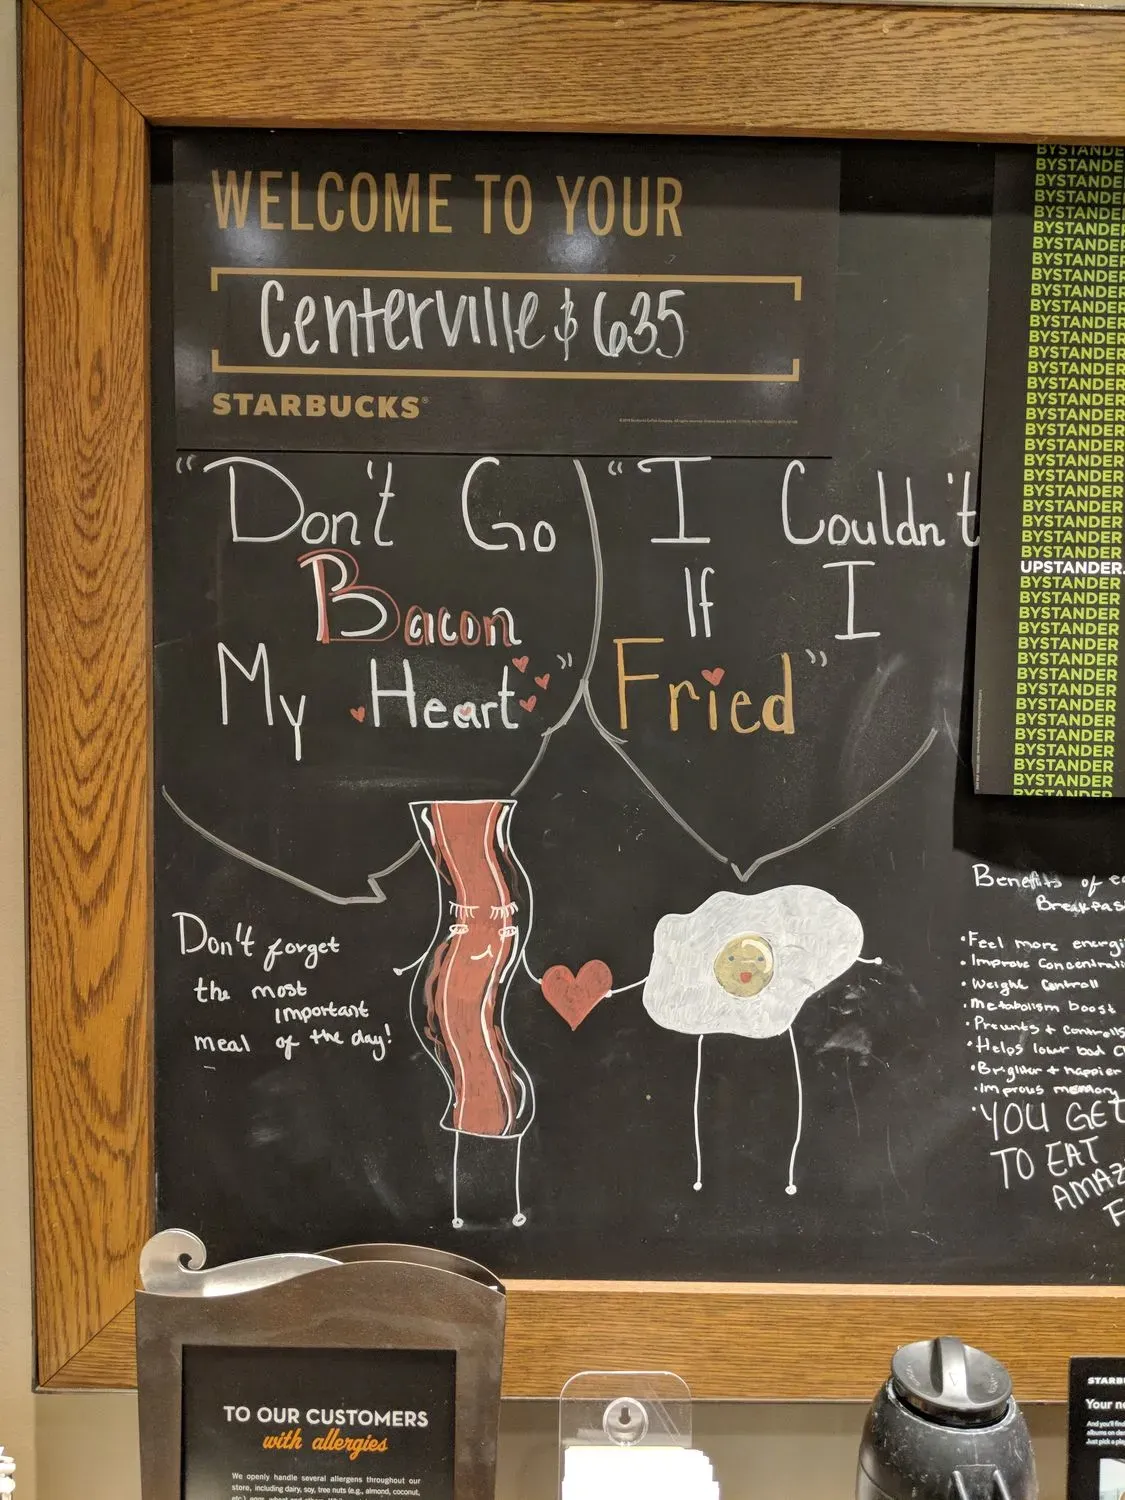 WELCOME TO YOUR
Centerville & 635
STARBUCKS®
"Don't Go
Bacon
My Heart"
"I Couldn't
If I
Fried"
Don't forget
the most
important
meal of the day!
BYSTANDER
BYSTANDER
BYSTANDER
BYSTANDER
BYSTANDER
BYSTANDER
BYSTANDER
BYSTANDER
BYSTANDER
BYSTANDER
BYSTANDER
BYSTANDER
BYSTANDER
BYSTANDER
BYSTANDER
BYSTANDER
BYSTANDER
BYSTANDER
BYSTANDER
BYSTANDER
BYSTANDER
BYSTANDER
BYSTANDER
BYSTANDER
BYSTANDER
BYSTANDER
BYSTANDER
UPSTANDER.
BYSTANDER
BYSTANDER
BYSTANDER
BYSTANDER
BYSTANDER
BYSTANDER
BYSTANDER
BYSTANDER
BYSTANDER
BYSTANDER
BYSTANDER
BYSTANDER
BYSTANDER
BYSTANDER
BYSTANDER
Benefits of
• Feel more
• Improve
• Weight Controll
• Metabolism boost
• Helps lower bad
• Brighter + happier
• Improves memory
• YOU GET
TO EAT
TO OUR CUSTOMERS
with allergies
We openly handle several allergens throughout our
store, including dairy, soy, tree nuts (e.g., almond, coconut,
Your